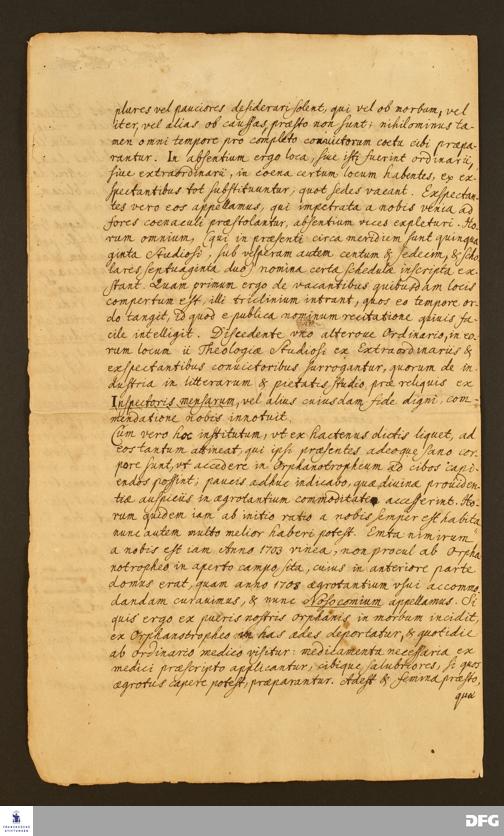 plures vel pauciores desiderari solent, qui vel ob morbum, vel
iter, vel alias ob caussas, præsto non sunt; nihilominus ta-
men omni tempore pro completo convictorum coetu cibi præpa-
rantur. In absentium ergo loca, siue isti fuerint ordinarii,
siue extraordinarii, in coena certum locum habentes, ex ex-
spectantibus tot substituuntur, quot sedes vacant. Exspectan-
tes vero eos appellamus, qui impetrata a nobis venia ad
fores coenaculi præstolantur, absentium vices expleturi. Ho-
rum omnium, (qui in præsenti circa meridiem sunt quinqua
ginta Studiosi, sub vesperam autem centum & sedecim, & scho
lares septuaginta duo) nomina certa schedula inscripta ex-
stant. Quam primum ergo de vacantibus quibusdam locis
compertum est, illi triclinium intrant, quos eo tempore or-
do tangit, id quod e publica nominum recitatione quiuis fa-
cile intelligit. Discedente vno alteroue Ordinario, in eo-
rum locum ii Theologiæ Studiosi ex Extraordinariis &
exspectantibus convictoribus surrogantur, quorum de in-
dustria in litterarum & pietatis studio, præ reliquis ex
Inspectoris mensarum, vel alius cuiusdam fide digni, com-
mendatione nobis innotuit.
Cum vero hoc institutum, vt ex hactenus dictis liquet, ad
eos tantum attineat, qui ipsi præsentes, adeoque sano cor-
pore sunt, vt accedere in Orphanotropheum ad cibos capi-
endos possint; paucis adhuc indicabo, quæ diuinæ prouiden-
tiæ auspiciis in ægrotantium commoditatem accesserint. Ho-
rum quidem iam ab initio ratio a nobis semper est habita
nunc autem multo melior haberi potest. Emta nimirum
a nobis est iam Anno 1703 vinea, non procul ab Orpha
notropheo in aperto campo sita, cuius in anteriore parte
domus erat, quam anno 1708 ægrotantium vsui accommo
dandam curauimus, & nunc Nosocomium appellamus. Si
quis ergo ex pueris nostris orphanis in morbum incidit,
ex Orphanotropheo in has ædes deportatur, & quotidie
ab ordinario medico visitur: medicamenta necessaria ex
medici præscripto applicantur, cibique salubriores, si quos
ægrotus capere potest, præparantur. Adest & femina præsto,
quæ
FRANCKESCHE STIFTUNGEN
DFG